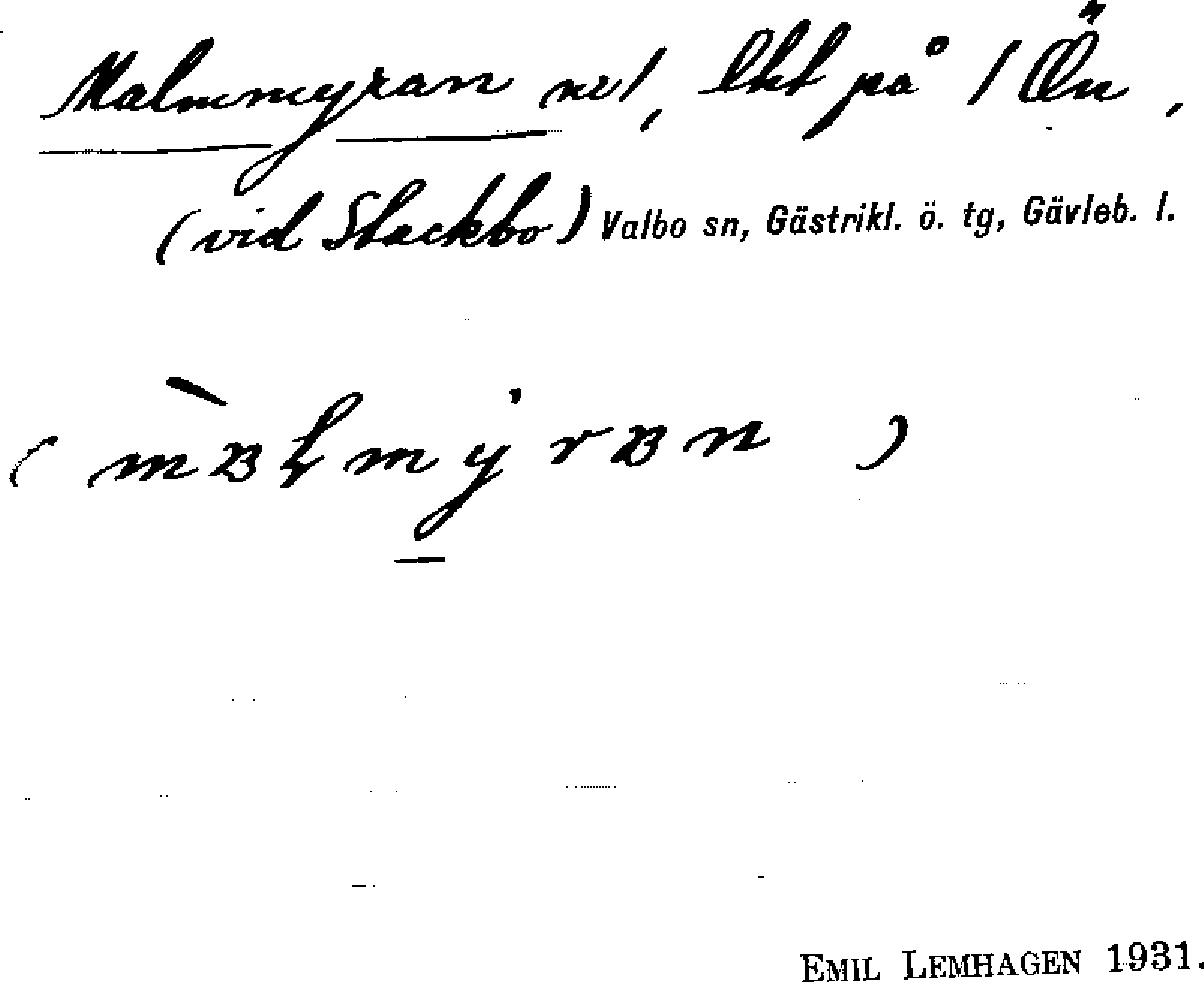 Malmmyran nr 1, lht på 1 Ön,
(vid Stackbo) Valbo sn, Gästrikl. ö. tg, Gävleb. l.
EMIL LEMHAGEN 1931.